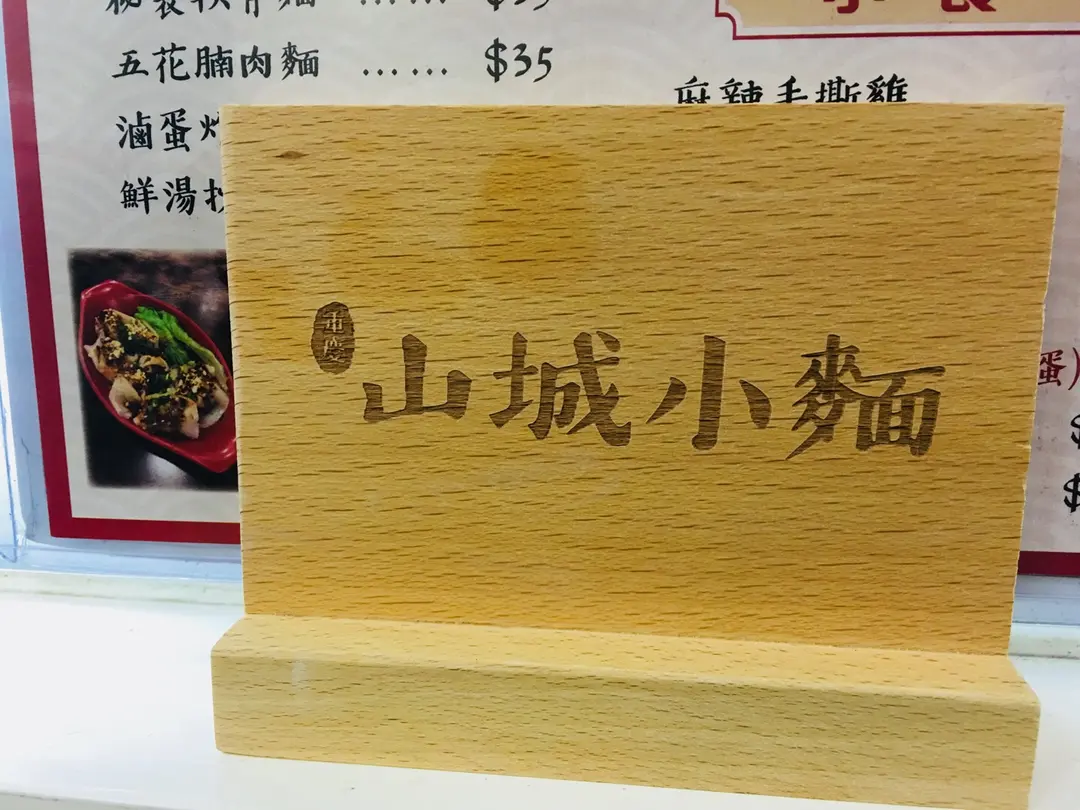 五花腩肉麵 …… $35
滷蛋
鮮湯
麻辣手撕雞
蛋)
$
$
重慶
山城小麵